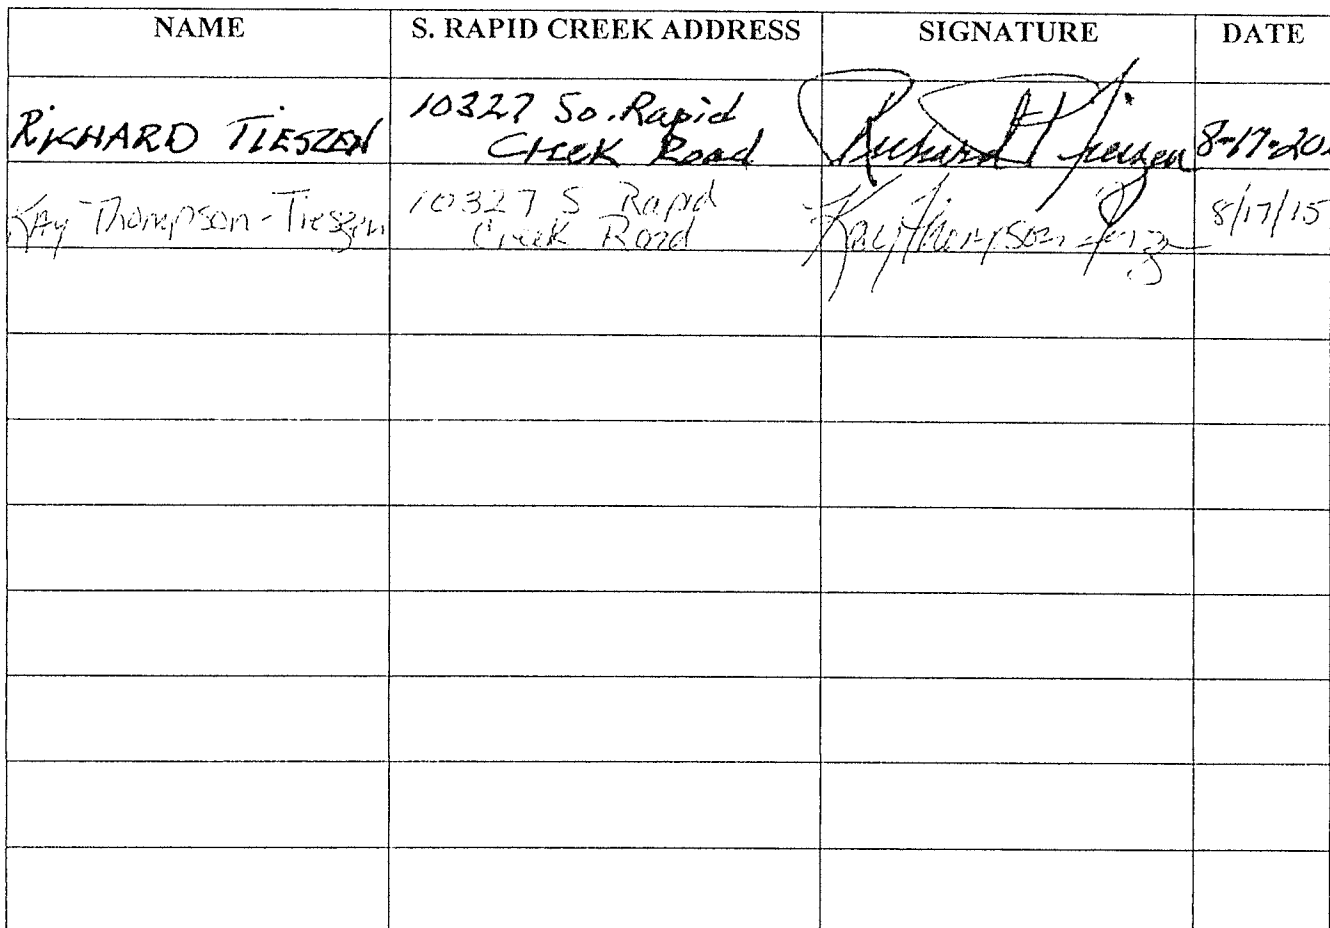 NAME S. RAPID CREEK ADDRESS SIGNATURE DATE
RICHARD TIESZEN 10327 So. Rapid Creek Road Richard P Tieszen 8-17-20
Kay Thompson-Tieszen 10327 S Rapid Creek Road Kay Thompson 8/17/15